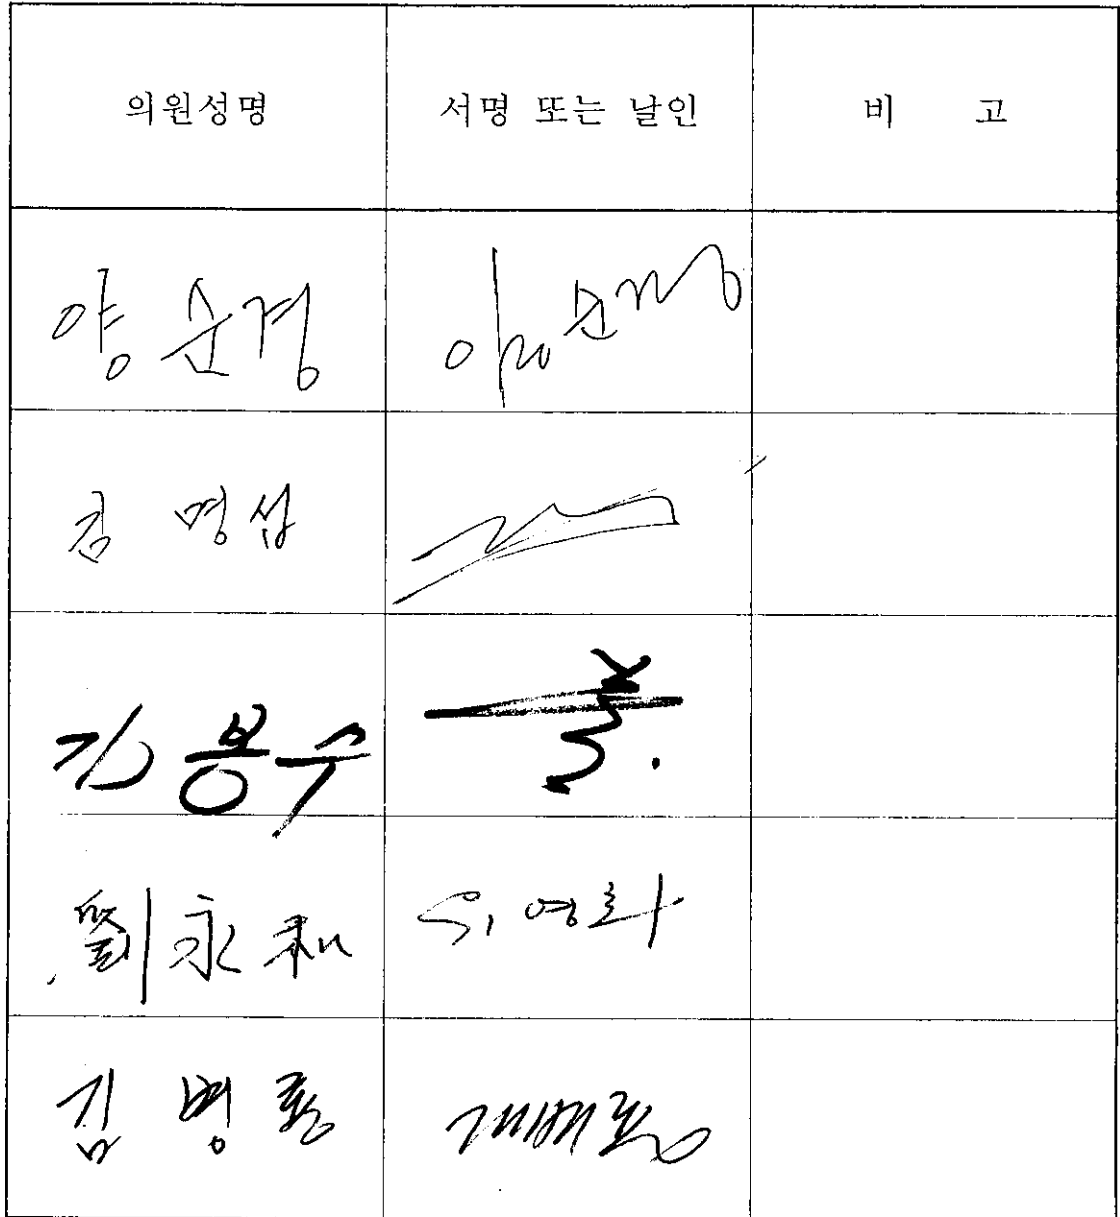 의원성명 서명 또는 날인 비 고
양순경 양순경
김명섭
김봉수
劉永和 유영화
김병